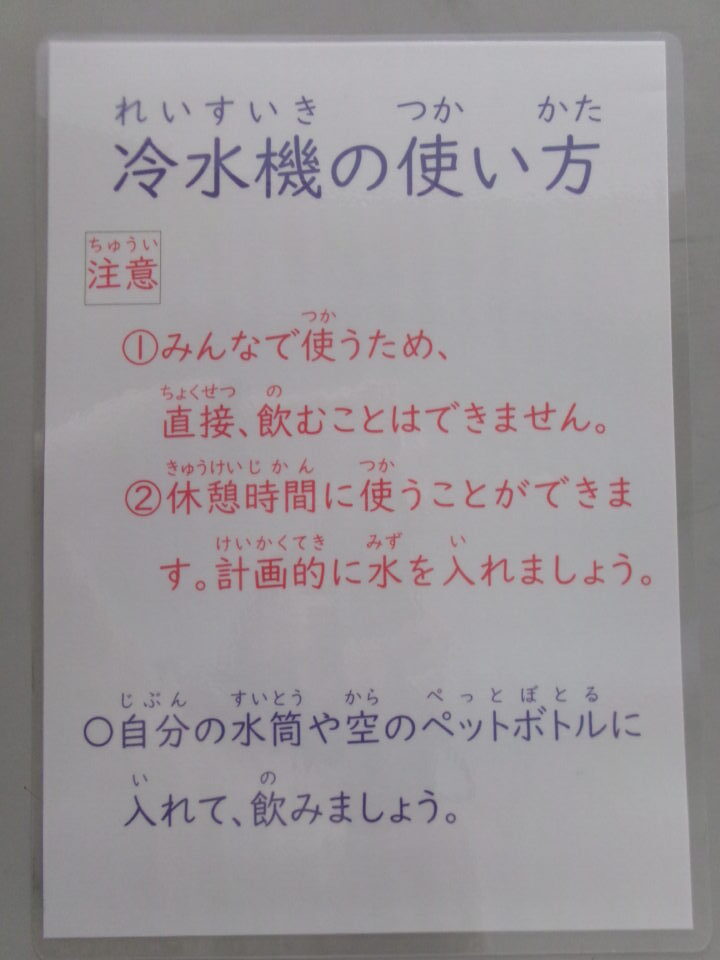 れいすいき つか かた
冷水機の使い方
ちゅうい
注意
つか
①みんなで使うため、
ちょくせつ の
直接、飲むことはできません。
きゅうけいじかん つか
②休憩時間に使うことができま
けいかくてき みず い
す。計画的に水を入れましょう。
じぶん すいとう から ぺっとぼとる
○自分の水筒や空のペットボトルに
い の
入れて、飲みましょう。